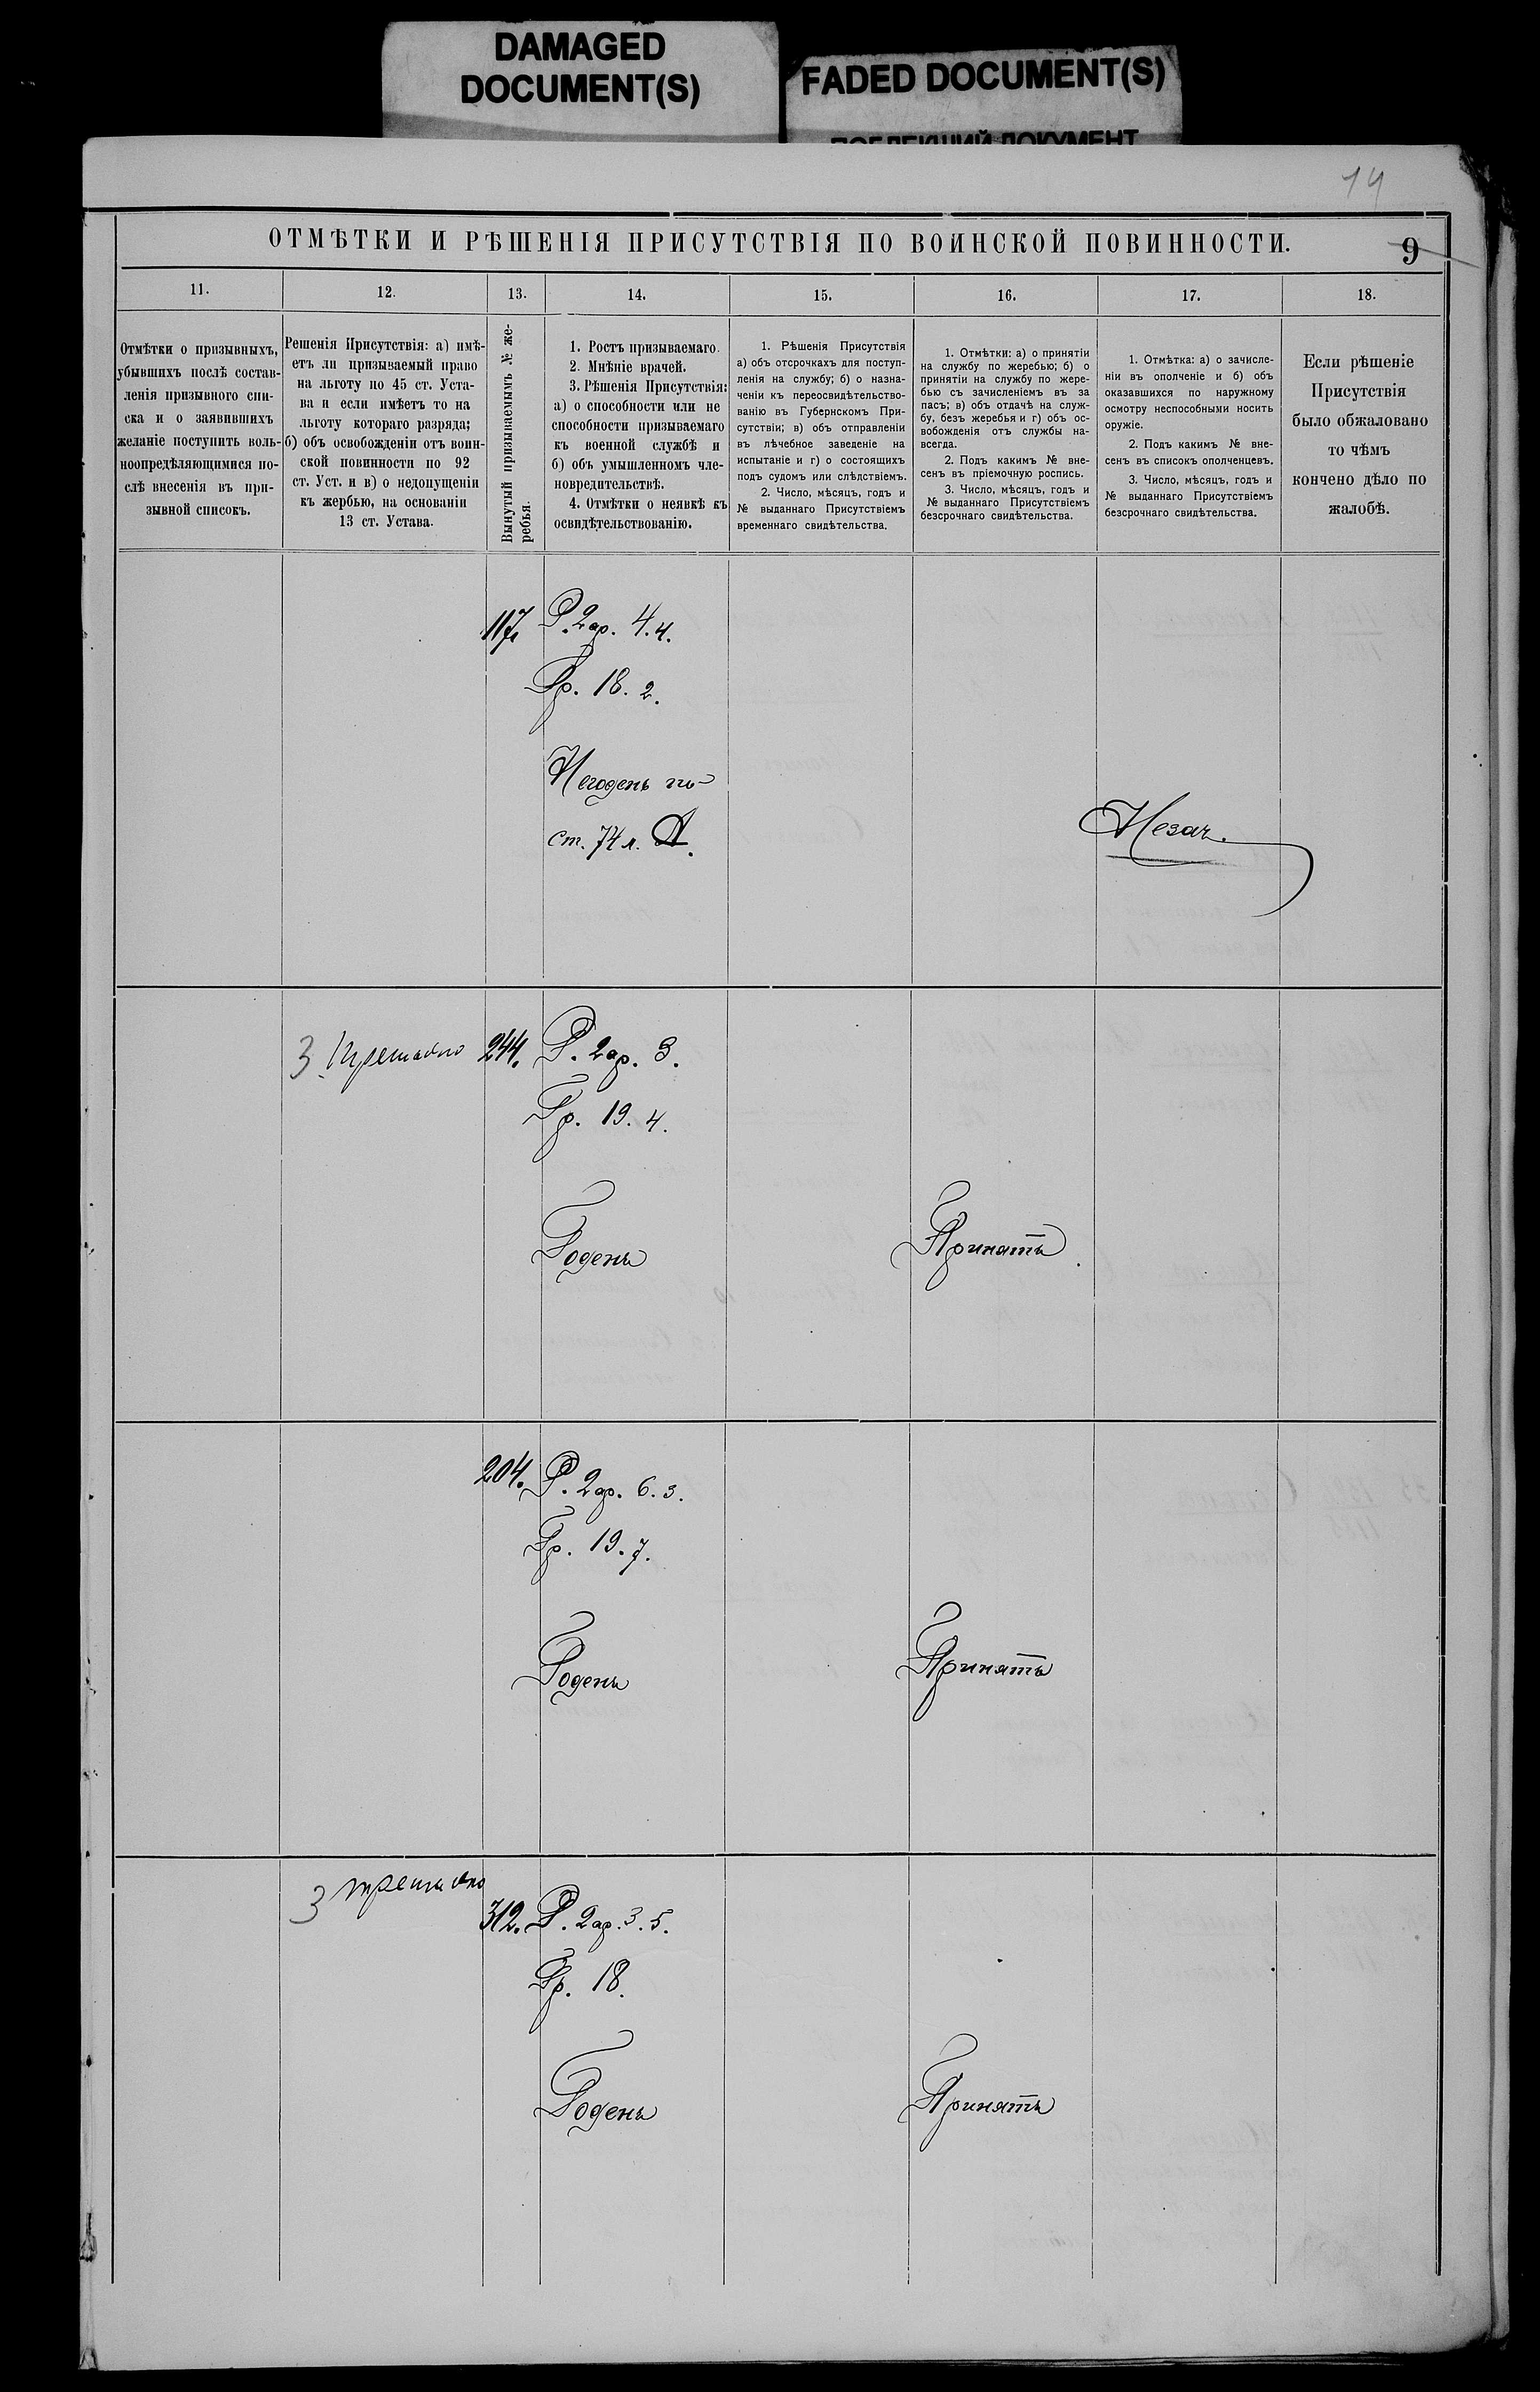 DAMAGED
DOCUMENT(S)
FADED DOCUMENT(S)
ПОБЛЕКШИЙ ДОКУМЕНТ
14
ОТМѢТКИ И РѢШЕНІЯ ПРИСУТСТВІЯ ПО ВОИНСКОЙ ПОВИННОСТИ.
9
11.
12.
13.
14.
15.
16.
17.
18.
Отмѣтки о призывныхъ,
убывшихъ послѣ состав-
ленія призывного спи-
ска и о заявившихъ
желаніе поступить воль-
ноопредѣляющимися по-
слѣ внесенія въ при-
зывной списокъ.
Решенія Присутствія: а) имѣ-
етъ ли призываемый право
на льготу по 45 ст. Уста-
ва и если имѣетъ то на
льготу котораго разряда;
б) объ освобожденіи отъ воин-
ской повинности по 92
ст. Уст. и в) о недопущеніи
къ жербью, на основаніи
13 ст. Устава.
Вынутый призываемымъ № же-
ребья.
1. Ростъ призываемаго.
2. Мнѣніе врачей.
3. Рѣшенія Присутствія:
а) о способности или не
способности призываемаго
къ военной службѣ и
б) объ умышленномъ чле-
новредительствѣ.
4. Отмѣтки о неявкѣ къ
освидѣтельствованію.
1. Рѣшенія Присутствія
а) объ отсрочкахъ для поступ-
ленія на службу; б) о назна-
ченіи къ переосвидѣтельство-
ванію въ Губернскомъ При-
сутствіи; в) объ отправленіи
въ лѣчебное заведеніе на
испытаніе и г) о состоящихъ
подъ судомъ или слѣдствіемъ.
2. Число, мѣсяцъ, годъ и
№ выданнаго Присутствіемъ
временнаго свидѣтельства.
1. Отмѣтки: а) о принятіи
на службу по жеребью; б) о
принятіи на службу по жере-
бью съ зачисленіемъ въ за
пасъ; в) объ отдачѣ на служ-
бу, безъ жеребья и г) объ ос-
вобожденія отъ службы на-
всегда.
2. Подъ какимъ № вне-
сенъ въ пріемочную роспись.
3. Число, мѣсяцъ, годъ и
№ выданнаго Присутствіемъ
безсрочнаго свидѣтельства.
1. Отмѣтка: а) о зачисле-
ніи въ ополченіе и б) объ
оказавшихся по наружному
осмотру неспособными носить
оружіе.
2. Подъ какимъ № вне-
сенъ въ списокъ ополченцевъ.
3. Число, мѣсяцъ, годъ и
№ выданнаго Присутствіемъ
безсрочнаго свидѣтельства.
Если рѣшеніе
Присутствія
было обжаловано
то чѣмъ
кончено дѣло по
жалобѣ.
117.
Р. 2 ар. 4.4.
Гр. 18. 2.
Негоденъ по
ст. 74 л. А.
Незач.
3
244.
Р. 2 ар. 3.
Гр. 19. 4.
Годенъ
Принятъ.
204.
Р. 2 ар. 6.3.
Гр. 19. 7.
Годенъ
Принятъ
3
312.
Р. 2 ар. 3.5.
Гр. 18.
Годенъ
Принятъ